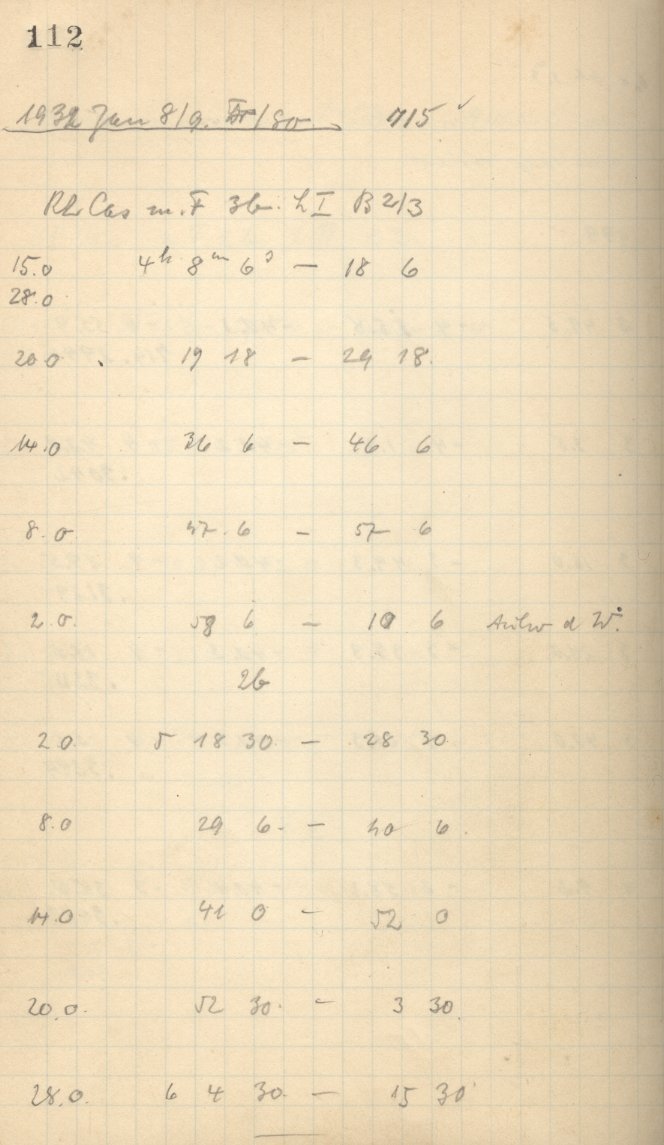 112
1932 Jan 8/9. 715
Cas m. F 3b. L I B 2/3
15.0 4h 8m 6s — 18 6
28.0
20 0 19 18 — 29 18.
14.0 36 6 — 46 6
8.0 47 6 — 57 6
2.0. 58 6 — 10 6 d W.
2b
2 0. 5 18 30 — 28 30
8.0 29 6. — 40 6.
14.0 41 0 — 52 0
20.0. 52 30. — 3 30.
28.0. 6 4 30. — 15 30